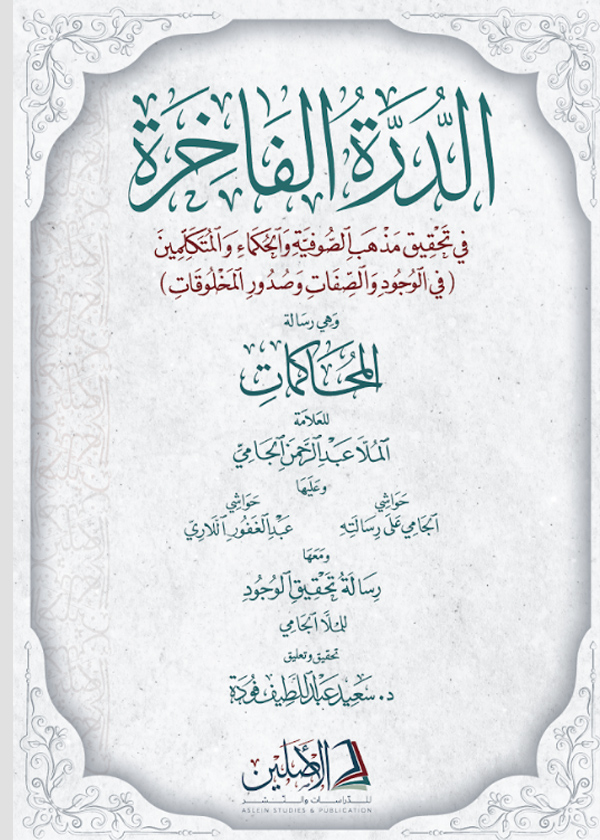 الدُّرَّةُ الفَاخِرَة
فِي تَحْقِيقِ مَذْهَبِ الصُّوفِيَّةِ وَالحُكَمَاءِ وَالمُتَكَلِّمِينَ
(فِي الوُجُودِ وَالصِّفَاتِ وَصُدُورِ المَخْلُوقَاتِ)
وَهِي رسالة
المُحَاكَمَاتِ
للعلامة
المُلَّا عَبْدِ الرَّحْمَنِ الجَامِيِّ
وعَلَيها
حَوَاشِي
الجَامِي عَلَى رِسَالَتِهِ
حَوَاشِي
عَبْدِ الغَفُورِ اللَّارِيّ
ومَعَها
رِسَالَةُ تَحْقِيقِ الوُجُودِ
للمُلَّا الجَامِي
تحقيق وتعليق
د. سَعِيد عَبْد اللَّطِيف فُودَة
الأصلين
للدراسات والنشر
ASLEIN STUDIES & PUBLICATION